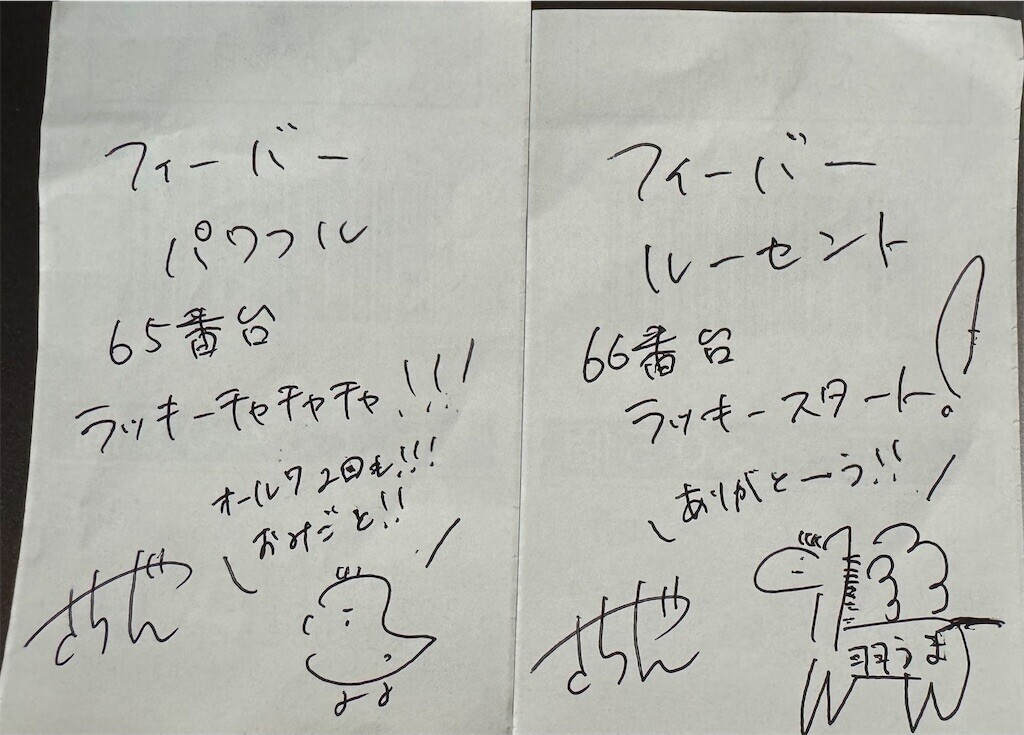 フィーバー
パワフル
65番台
ラッキーチャチャチャ!!!
オール7 2回も!!!
おみごと!!
フィーバー
ルーセント
66番台
ラッキースタート!
ありがとーう!!
羽うま